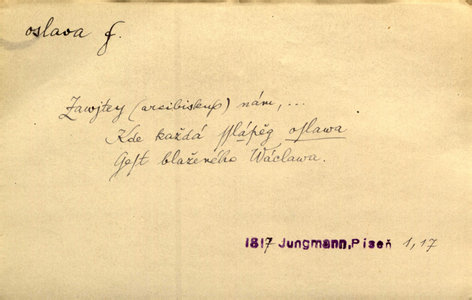 oslava f.
Zawjtey (arcibiskup) nám, ...
Kde každá ſſlápěg oſlawa
Geſt blaženého Wáclawa.
1817 Jungmann, Píseň 1,17